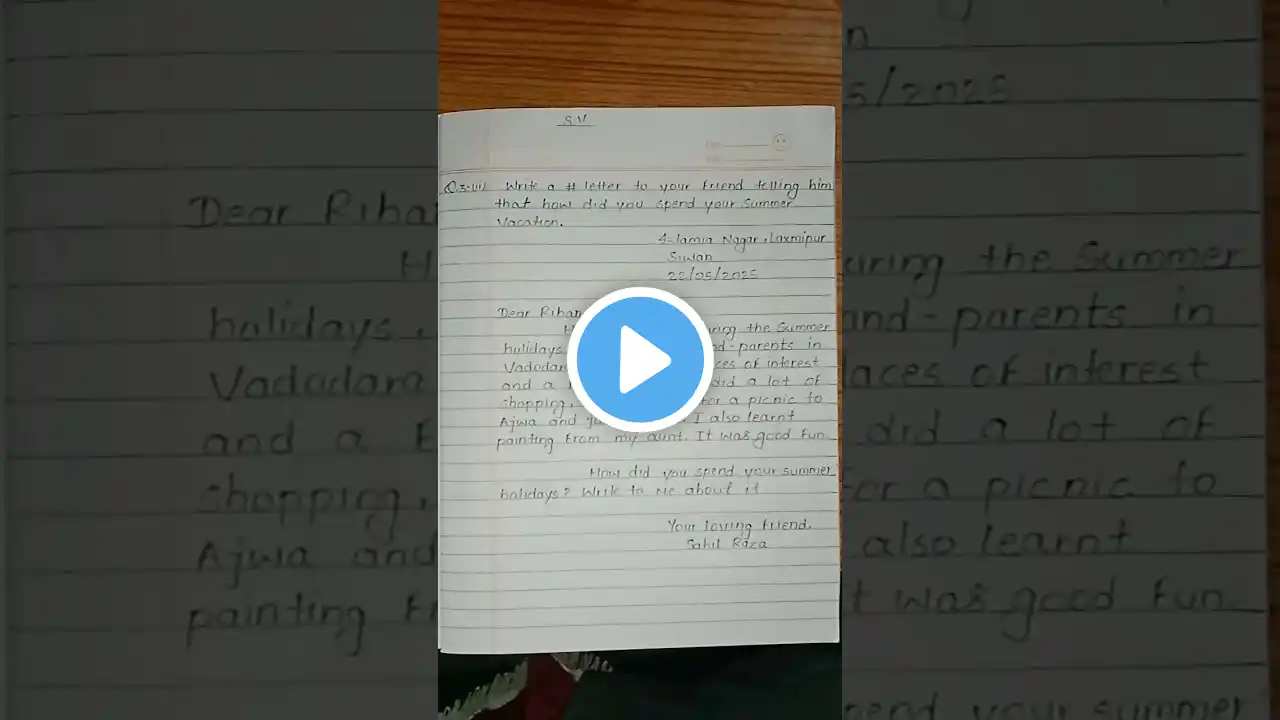 Q3.(ii) Write a # letter to your friend telling him
that how did you spend your summer
Vacation.
4-Jamia Nagar, Laxmipur
Siwan
22/05/2025
Dear Rihan
H uring the Summer
holidays nd-parents in
Vadodara ces of interest
and a did a lot of
shopping, for a picnic to
Ajwa and I also learnt
painting from my aunt. It was good fun.
How did you spend your summer
holidays? Write to me about it
Your loving friend.
Sahil Raza